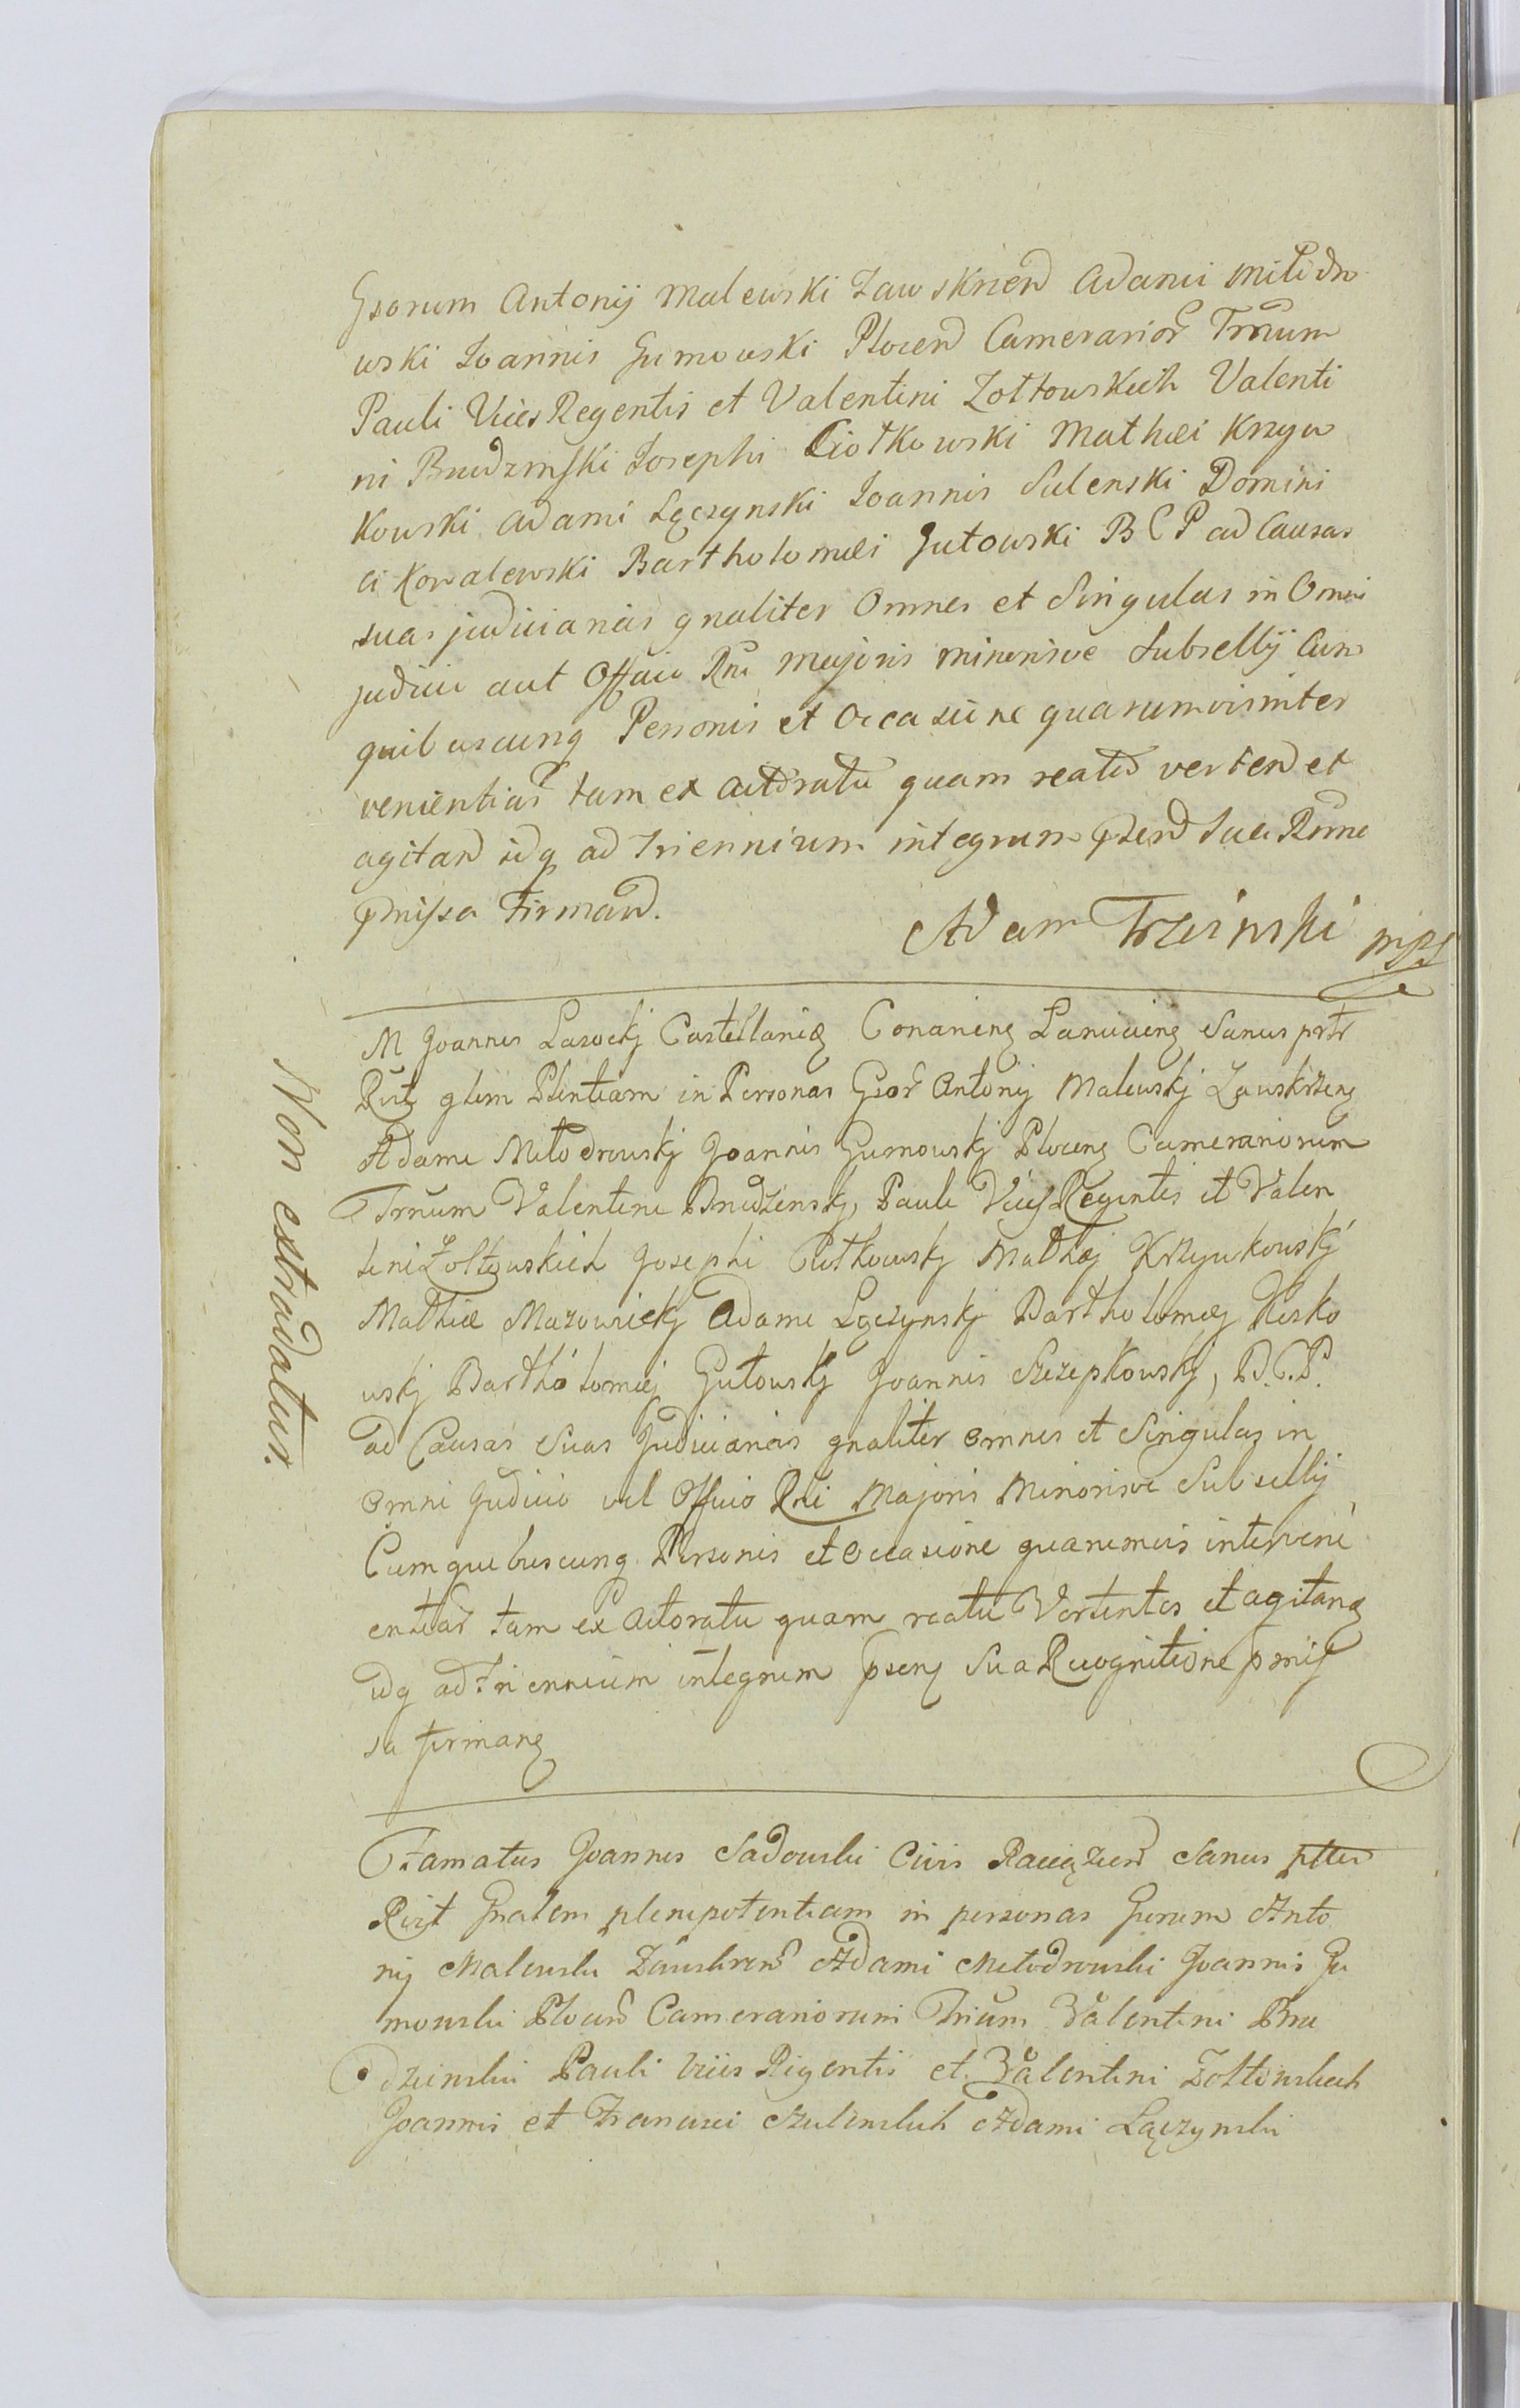 Gsorum Antonij Malewski Zawskrzen Adami Miłodro
wski Joannis Gumowski Plocen Camerarior Trrum
Pauli Vices Regentis et Valentini Zołtowskich Valenti
ni Brudzinski Josephi Ciołkowski Mathæi Krzyw
kowski Adami Lęczynski Joannis Sulenski Domini
ci Kowalewski Bartholomæi Gutowski B C P ad Causas
suas judiciarias gnaliter Omnes et Singulas in Omni
judicio aut Officio Rni Majoris minorisve Subsellij Cum
quibuscunq Personis et Occasione quarumvis inter
venientiar tam ex actoratu quam reatu verten et
agitan idq ad triennium integrum psen sua Rnne
pmissa Firman.
Adam Trzcinski mpp
M Joannes Lasockj Castellanid Conarien Lancicien Sanus prtr
Rcit glem Plentiam in Personas Gsor Antonij Malewskj Zawskrzen
Adami Miłodrowskj Joannis Gumowskj Plocen Camerariorum
Trrum Valentini Brudzinskj, Pauli Vices Regentis et Valen
tini Zołtowskich Josephi Ciołkowskj Mathæj Krzywkowskj
Mathiæ Mazowieckj Adami Lęczynskj Bartholomæj Kisko
wskj Bartholomæj Gutowskj Joannis Szczepkowskj, B.C.P.
ad Causas Suas Judiciarias gnaliter omnes et Singulas in
omni Judicio vel Officio Rni Majoris Minorisve Subsellij
Cum quibuscunq Personis et occasione quarumvis interveni
entiar tam ex Actoratu quam reatu Vertentes et agitan
idq ad triennium integrum psen Sua Recognitione pmis
sa firman
Famatus Joannes Sadowski Civis Raciązen Sanus ptter
Rcit Gnalem plenipotentiam in personas Gsorum Anto
nij Malewski Zawskren Adami Miłodrowski Joannis Gu
mowski Plocen Camerariorum Trrum Valentini Bru
dzinski Pauli Vices Regentis et Valentini Zołtowskich
Joannis et Francisci Szulinskich Adami Lączynski
Non extradatur.